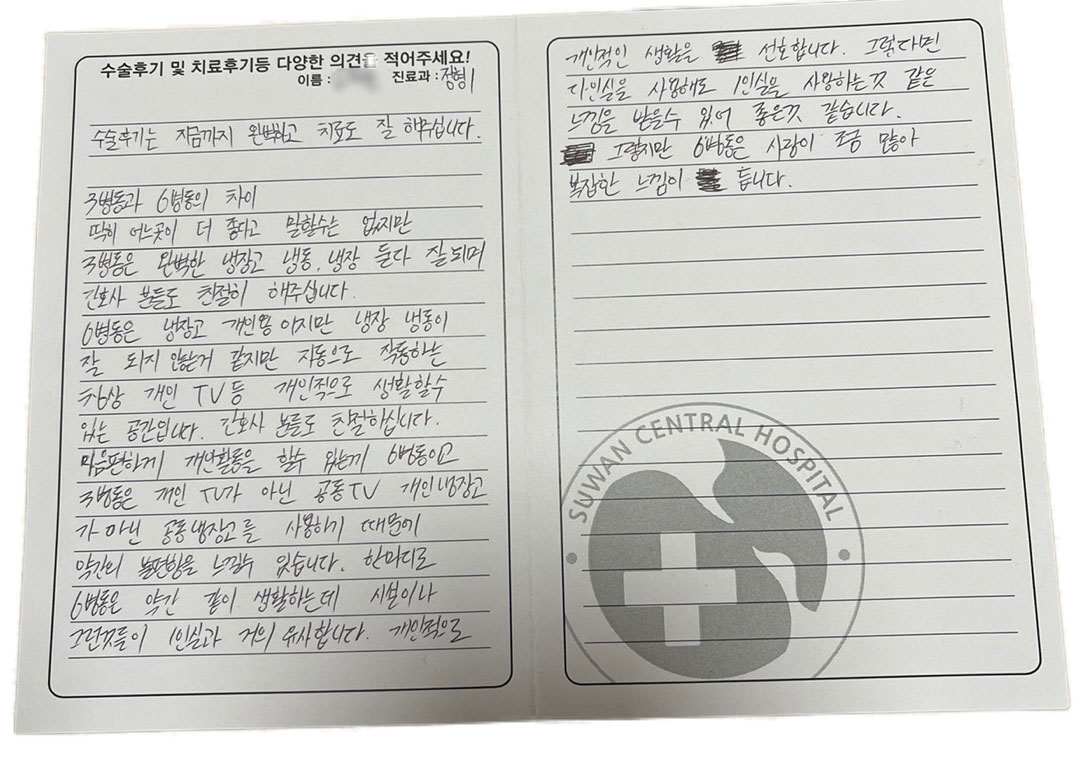 수술후기 및 치료후기등 다양한 의견을 적어주세요!
이름 : 진료과 : 정형1
수술후기는 지금까지 완벽하고 치료도 잘 해주십니다.
3병동과 6병동의 차이
딱히 어느곳이 더 좋다고 말할수는 없지만
3병동은 완벽한 냉장고 냉동, 냉장 둘다 잘되며
간호사 분들도 친절히 해주십니다.
6병동은 냉장고 개인용 이지만 냉장 냉동이
잘 되지 않는거 같지만 자동으로 작동하는
책상 개인 TV등 개인적으로 생활할수
있는 공간입니다. 간호사 분들도 친절하십니다.
마음편하게 개인활동을 할수 있는게 6병동이고
3병동은 개인 TV가 아닌 공동TV 개인냉장고
가 아닌 공동냉장고를 사용하기 때문에
약간의 불편함을 느낄수 있습니다. 한마디로
6병동은 약간 같이 생활하는데 시설이나
그런것들이 1인실과 거의 유사합니다. 개인적으로
개인적인 생활을 선호합니다. 그렇다면
다인실을 사용해도 1인실을 사용하는것 같은
느낌을 받을수 있어 좋은것 같습니다.
그렇지만 6병동은 사람이 조금 많아
복잡한 느낌이 듭니다.
SUWAN CENTRAL HOSPITAL